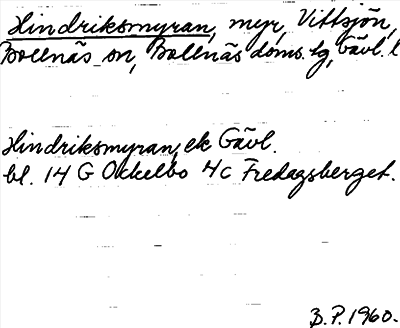 Hindriksmyran, myr, Vittsjön,
Bollnäs sn, Bollnäs doms. lg, Gävl. l
Hindriksmyran, ek Gävl.
bl. 14 G Ockelbo 4c Fredagsberget.
B.P. 1960.